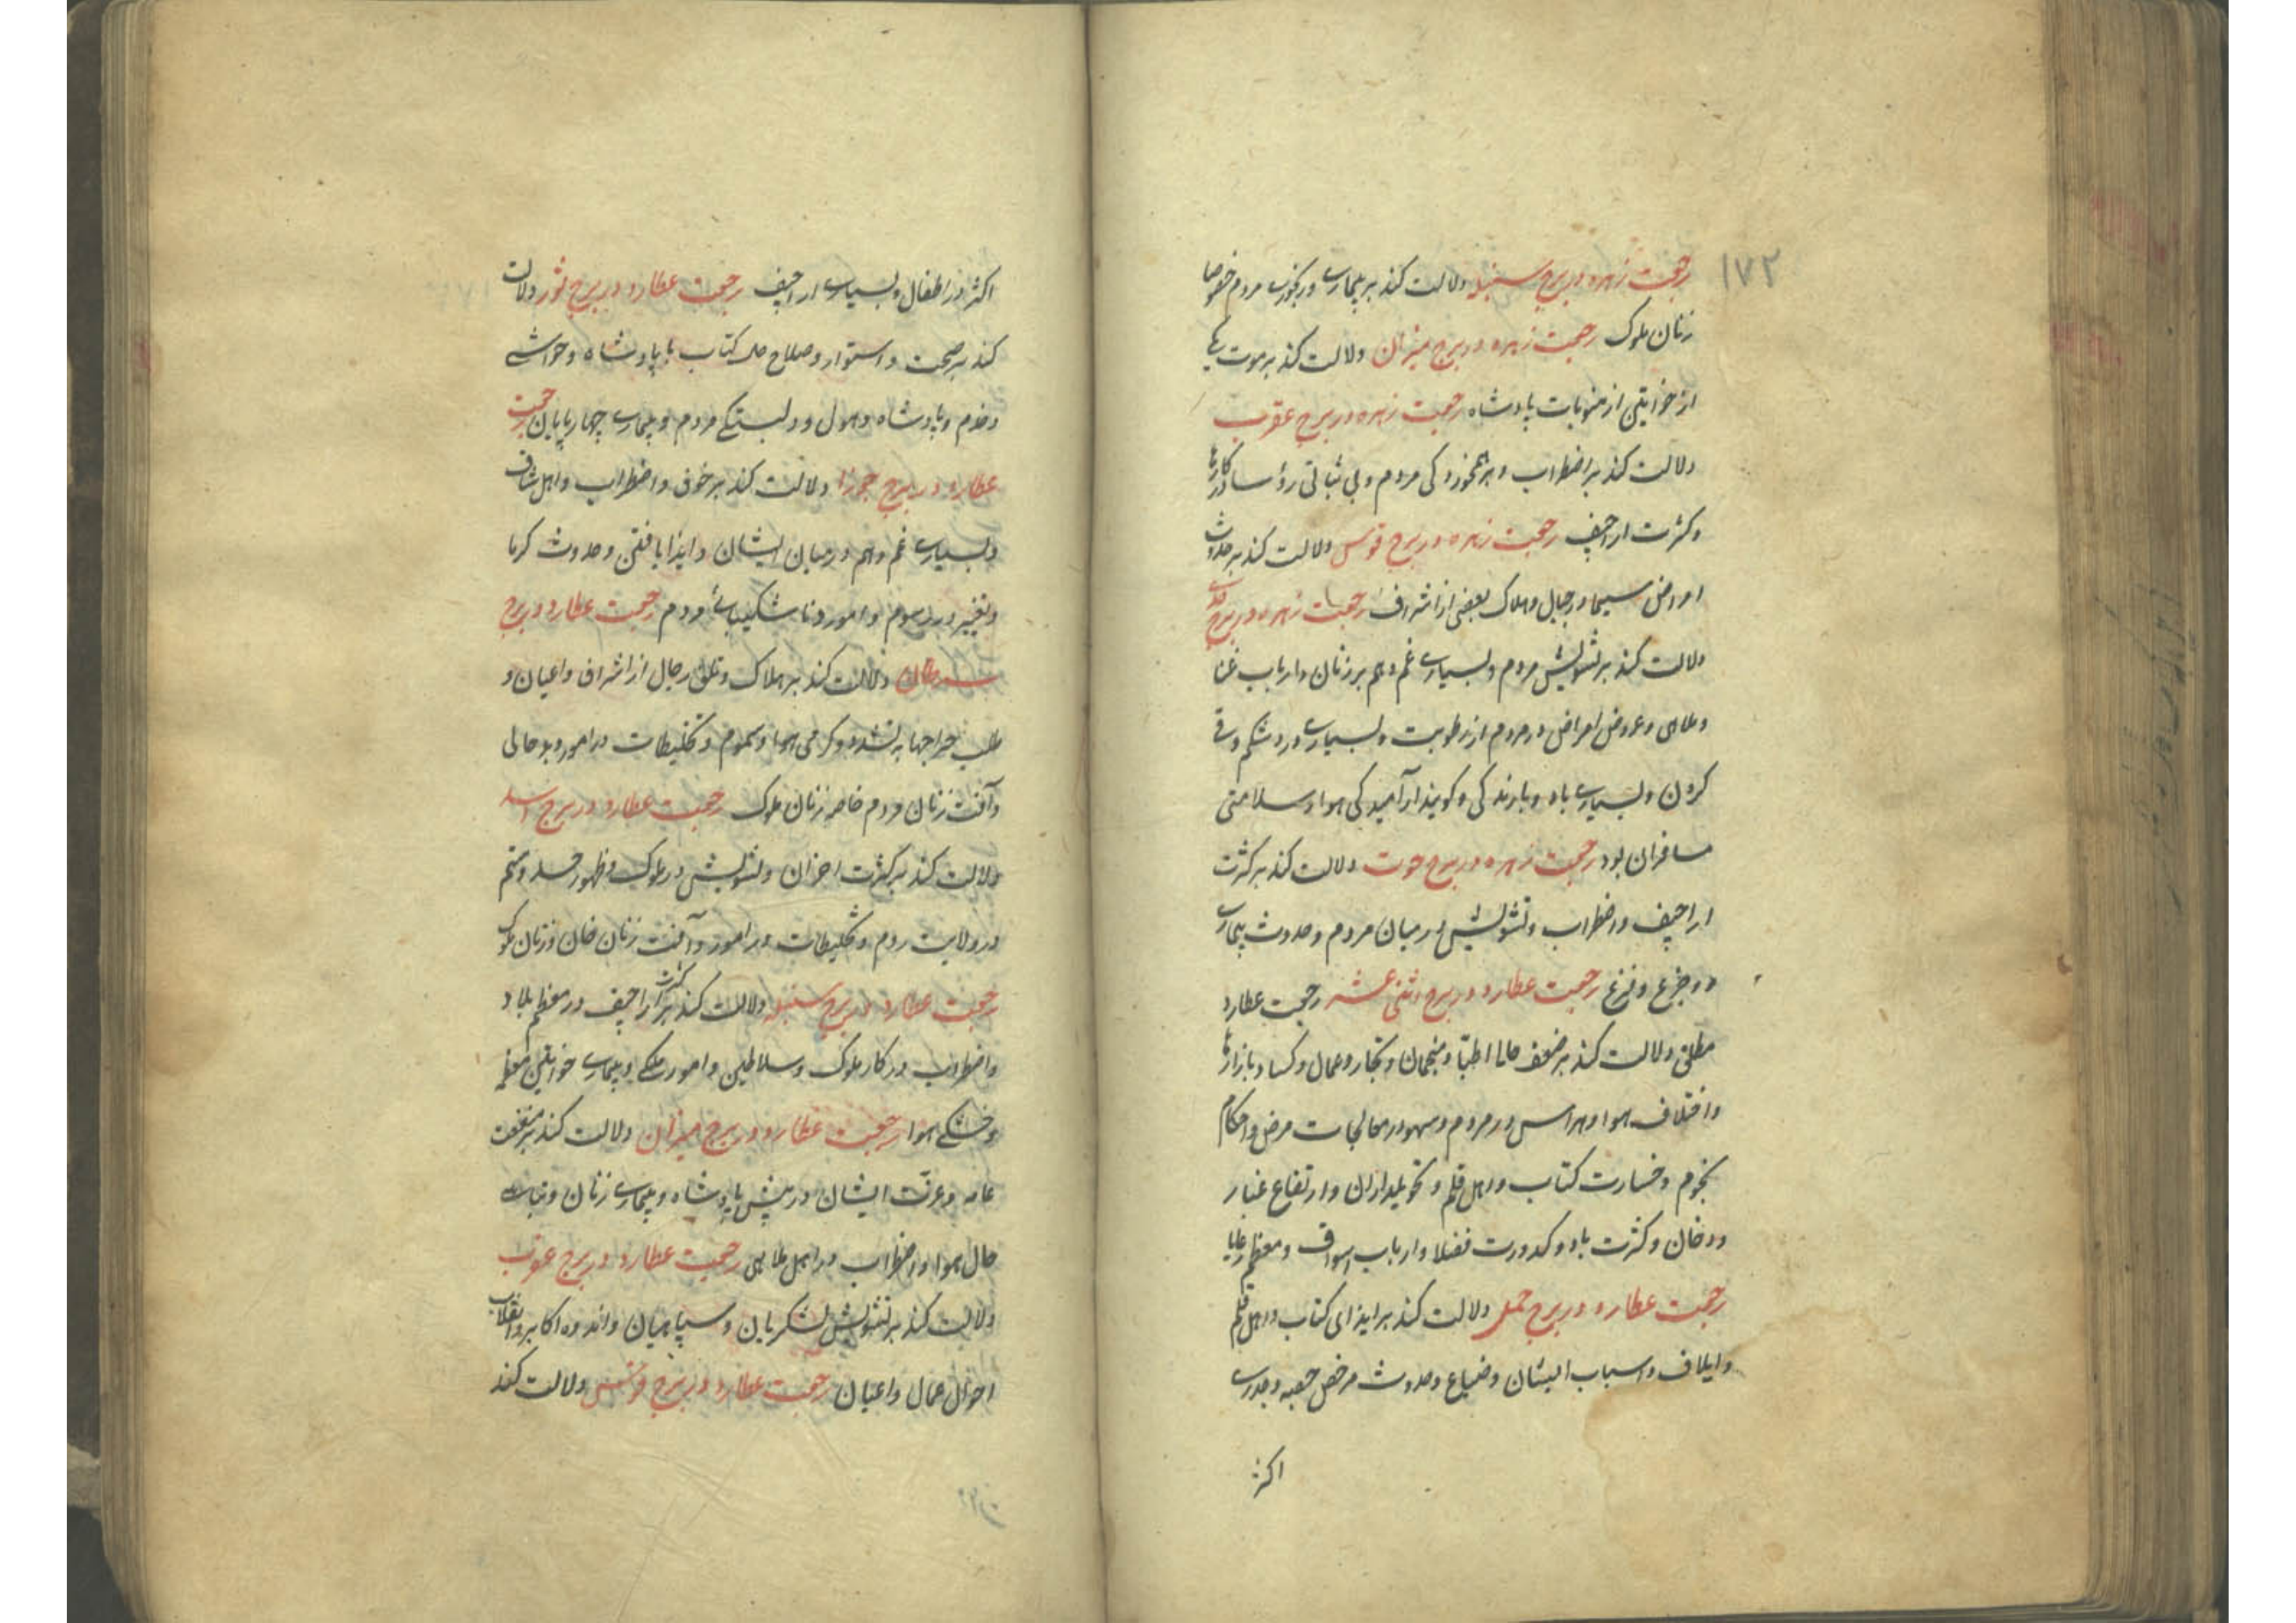 ۱۷۲
رجعت زهره در برج سنبله دلالت کند بر بیماری و رنجوری مردم خصوصا
زنان ملوک رجعت زهره در برج میزان دلالت کند بر موت یکی
از خواتین از منسوبات پادشاه رجعت زهره در برج عقرب
دلالت کند بر اضطراب و بر همخوردکی مردم و بی ثباتی رؤسا در کارها
و کثرت اراجیف رجعت زهره در برج قوس دلالت کند بر حدوث
امراض سیما در جبال و هلاک بعضی از اشراف رجعت زهره در برج جدی
دلالت کند بر تشویش مردم و بسیاری غم و هم بر زنان و ارباب غنا
و ملاهی و عروض امراض در مردم از رطوبت و بسیاری درد شکم و قی
کردن و بسیاری باد و بارندکی و کویند آرامیدکی هوا و سلامتی
مسافران بود رجعت زهره در برج حوت دلالت کند بر کثرت
اراجیف و اضطراب و تشویش در میان مردم و حدوث بیماری
و جزع و فزع رجعت عطارد در برج اثنی عشر رجعت عطارد
مطلق دلالت کند بر ضعف حال اطبّا و منجمان و تجار و عمال و کساد بازارها
و اختلاف هوا و هراس در مردم و سهو در معالجات مرض و احکام
نجوم و خسارت کتاب و اهل قلم و تحویلداران و ارتفاع غبار
و دخان و کثرت باد و کدورت فضلا و ارباب اسواق و معظم رعایا
رجعت عطارد در برج حمل دلالت کند بر ایذای کتاب و اهل قلم
و ایلاف و اسباب ایشان و ضیاع و حدوث مرض حصبه و جدری
اکثر
اکثر در اطفال و بسیاری اراجیف رجعت عطارد در برج ثور دلالت
کند بر صحت و استوار و صلاح کتاب با پادشاه و حواشی
و خدم و پادشاه و هول و دلبستکی مردم و بیماری چهارپایان رجعت
عطارد در برج جوزا دلالت کند بر خوف و اضطراب و اهل
و بسیاری غم و هم در میان ایشان و ایذا یافتن و حدوث کرما
و تغییر در رسوم و امور و ناشکیبائی مردم رجعت عطارد در برج
سرطان دلالت کند بر هلاک و تلق رجال از اشراف و اعیان و
طلب خراجها به تشدد و کرمی هوا و سموم و تخلیطات در امور و بدحالی
و آفت زنان مردم خاصه زنان ملوک رجعت عطارد در برج اسد
دلالت کند بر کثرت احزان و تشویش در ملوک و ظهور حسد و ستم
در ولایت روم و تخلیطات در امور و آفت زنان خان و زنان ملوک
رجعت عطارد در برج سنبله دلالت کند بر کثرت اراجیف در معظم بلاد
و اضطراب در کار ملوک و سلاطین و امور ملکی و بیماری خواتین معظمه
و خشکی هوا رجعت عطارد در برج میزان دلالت کند بر منفعت
عامه و عزت ایشان در پیش پادشاه و بیماری زنان و تباهی
حال هوا و اضطراب در اهل ملاهی رجعت عطارد در برج عقرب
دلالت کند بر تشویش لشکریان و سپاهیان و اندوه اکابر و انقلاب
احوال عمال و اعیان رجعت عطارد در برج قوس دلالت کند